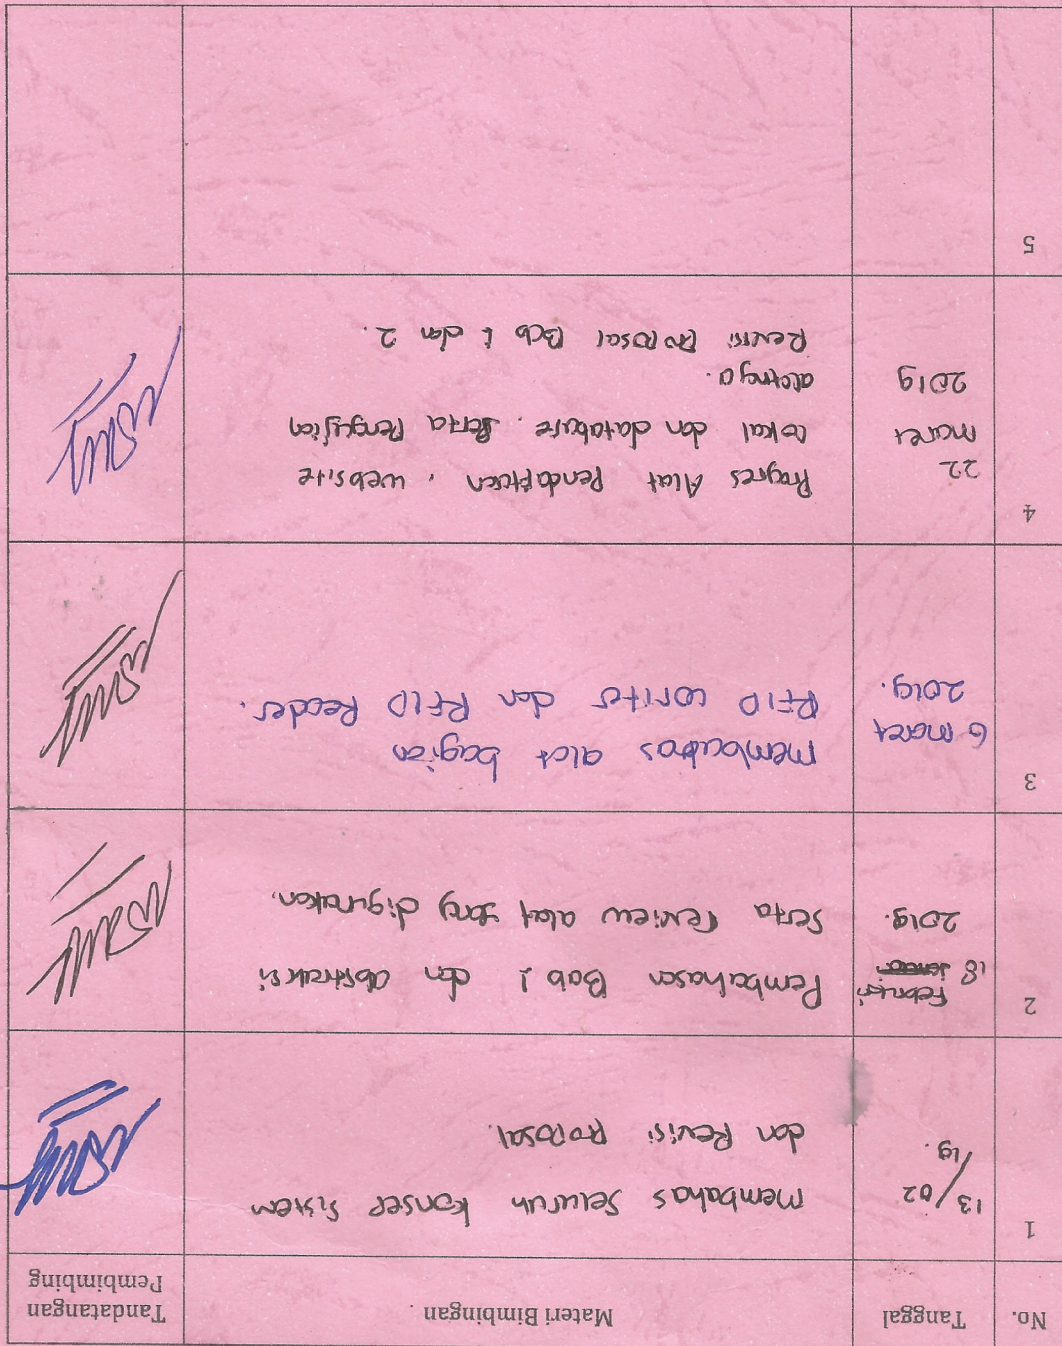 No.
Tanggal
Materi Bimbingan
Tandatangan
Pembimbing
1
13/02
/19.
membahas Seluruh Konsep sistem
dan Revisi Proposal.
2
Februari
18
2019.
Pembahasan Bab 1 dan abstraksi
Serta review alat yang digunakan.
3
6 maret
2019.
membahas alat bagian
RFID writer dan RFID Reader.
4
22
maret
2019
Progres Alat Pendaftaran, website
lokal dan database. serta Pengujian
alatnya.
Revisi Proposal Bab 1 dan 2.
5